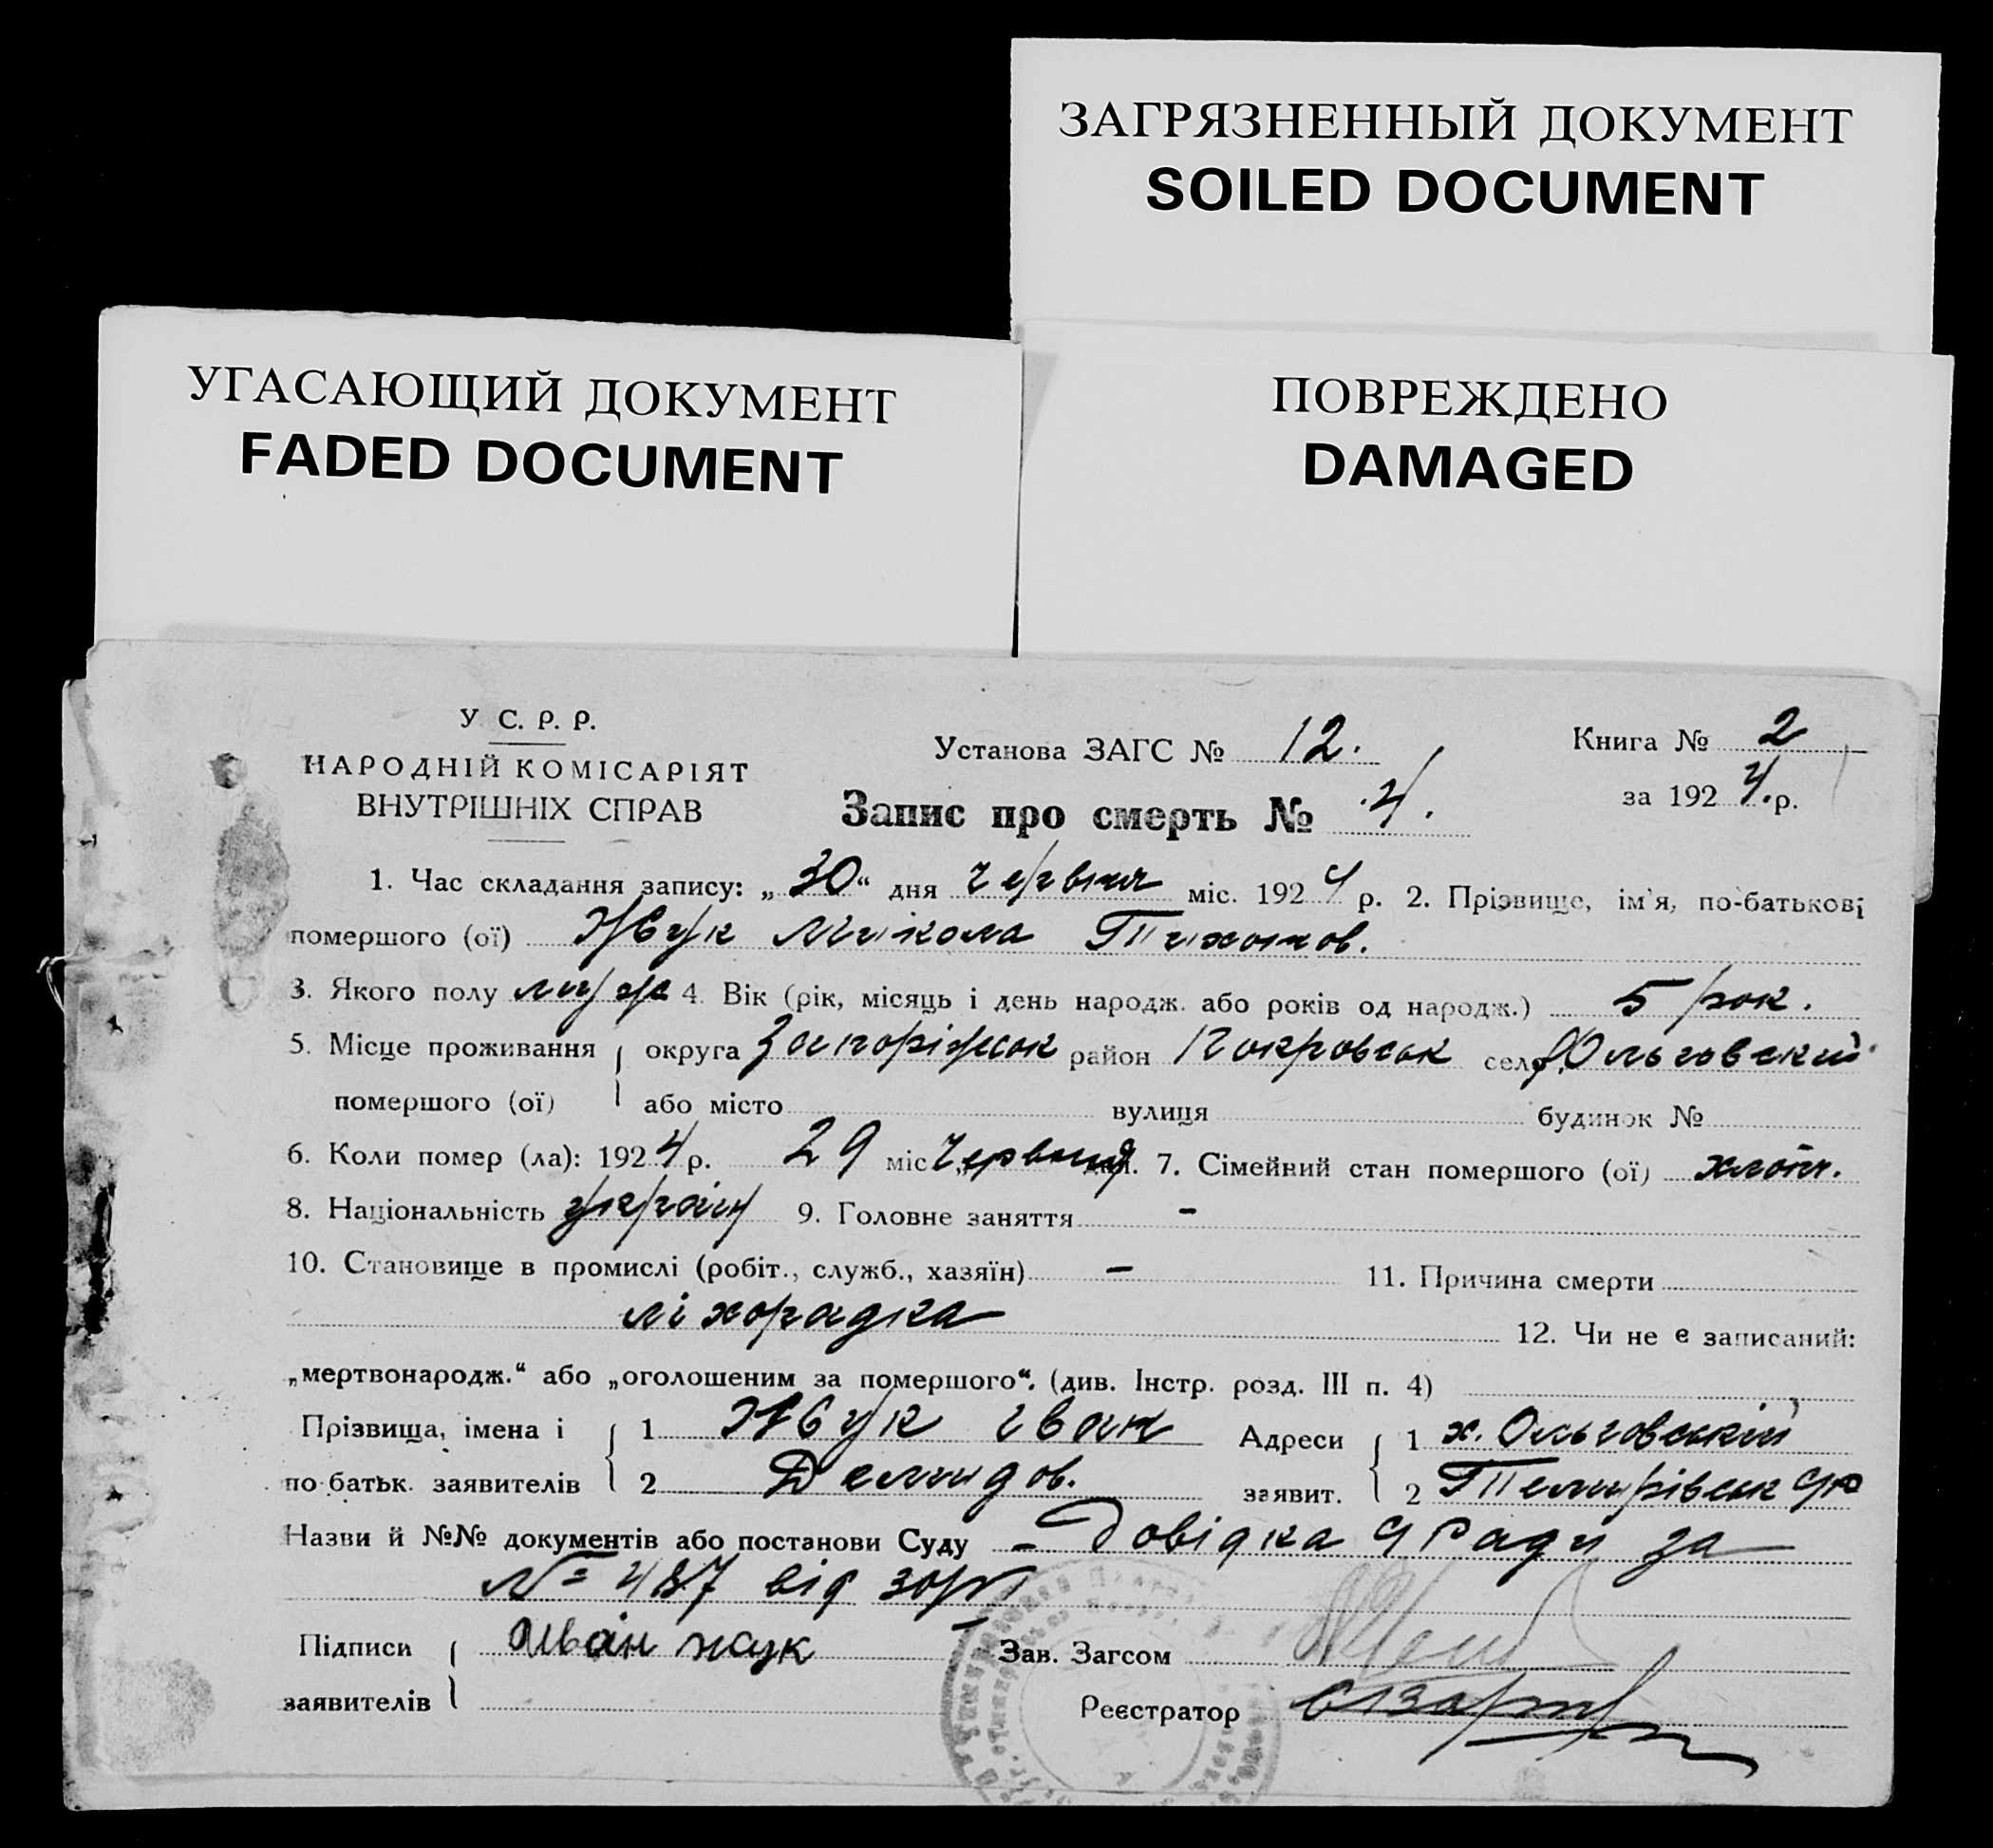 ЗАГРЯЗНЕННЫЙ ДОКУМЕНТ
SOILED DOCUMENT
УГАСАЮЩИЙ ДОКУМЕНТ
FADED DOCUMENT
ПОВРЕЖДЕНО
DAMAGED
У С. Р. Р.
НАРОДНІЙ КОМІСАРІЯТ
ВНУТРІШНІХ СПРАВ
Установа ЗАГС № 12.
Книга № 2
за 1924.р.
Запис про смерть № 4.
1. Час складання запису: „30“ дня червня міс. 1924 р. 2. Прізвище, ім'я, по-батькові
помершого (ої) Жук Микола Тихонов.
3. Якого полу муж 4. Вік (рік, місяць і день народж. або років од народж.) 5 рок.
5. Місце проживання округа Запоріжськ район Покровськ село Ольговский
помершого (ої) або місто вулиця будинок №
6. Коли помер (ла): 1924 р. 29 міс червня 7. Сімейний стан помершого (ої) хлоп.
8. Національність україн 9. Головне заняття -
10. Становище в промислі (робіт., служб., хазяїн) - 11. Причина смерти
ліхорадка 12. Чи не є записаний:
„мертвонародж.“ або „оголошеним за помершого“. (див. Інстр. розд. III п. 4)
Прізвища, імена і 1 Жук Іван Адреси 1 х. Ольговський
по-батьк. заявителів 2 Демидов. заявит. 2
Назви й №№ документів або постанови Суду - Довідка с Ради за
№ 487 від 30/VI
Підписи Иван жук Зав. Загсом
заявителів Реєстратор